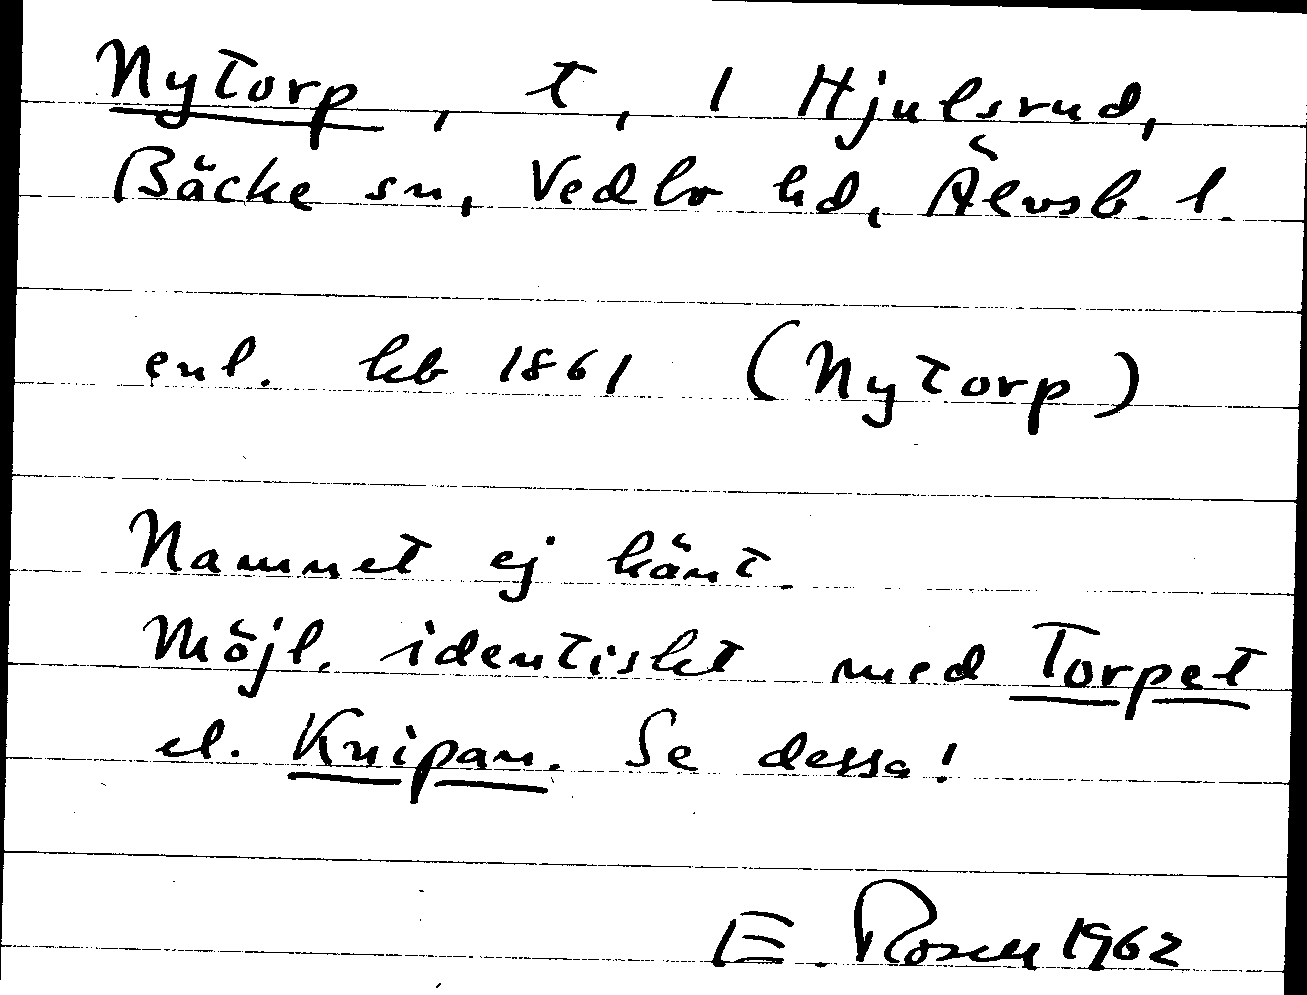 Nytorp, t, 1 Hjulsrud,
Bäcke sn, Vedbo hd, Älvsb. l.
enl. kb 1861 (Nytorp)
Namnet ej känt.
Möjl. identiskt med Torpet
el. Knipan. Se dessa!
E. Rosén 1962